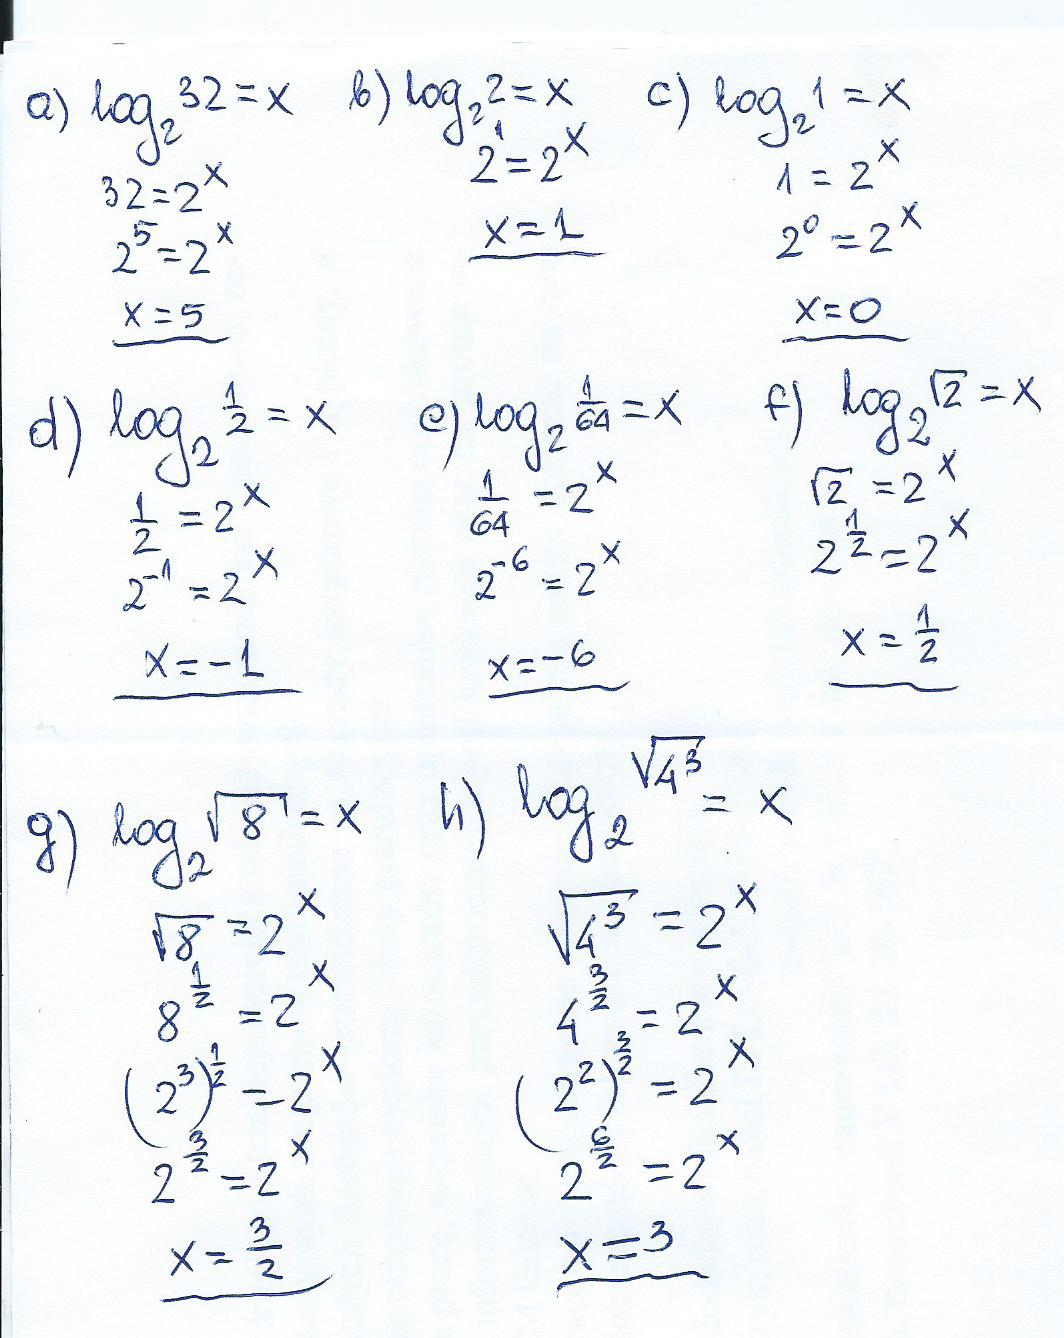 a) log₂32=x
32=2ˣ
2⁵=2ˣ
x=5
b) log₂2=x
2¹=2ˣ
x=1
c) log₂1=x
1=2ˣ
2⁰=2ˣ
x=0
d) log₂ 1/2 = x
1/2 = 2ˣ
2⁻¹ = 2ˣ
x=-1
e) log₂ 1/64 = x
1/64 = 2ˣ
2⁻⁶ = 2ˣ
x=-6
f) log₂√2 = x
√2 = 2ˣ
2^(1/2) = 2ˣ
x = 1/2
g) log₂√8 = x
√8 = 2ˣ
8^(1/2) = 2ˣ
(2³)^(1/2) = 2ˣ
2^(3/2) = 2ˣ
x = 3/2
h) log₂√4³ = x
√4³ = 2ˣ
4^(3/2) = 2ˣ
(2²)^(3/2) = 2ˣ
2^(6/2) = 2ˣ
x=3